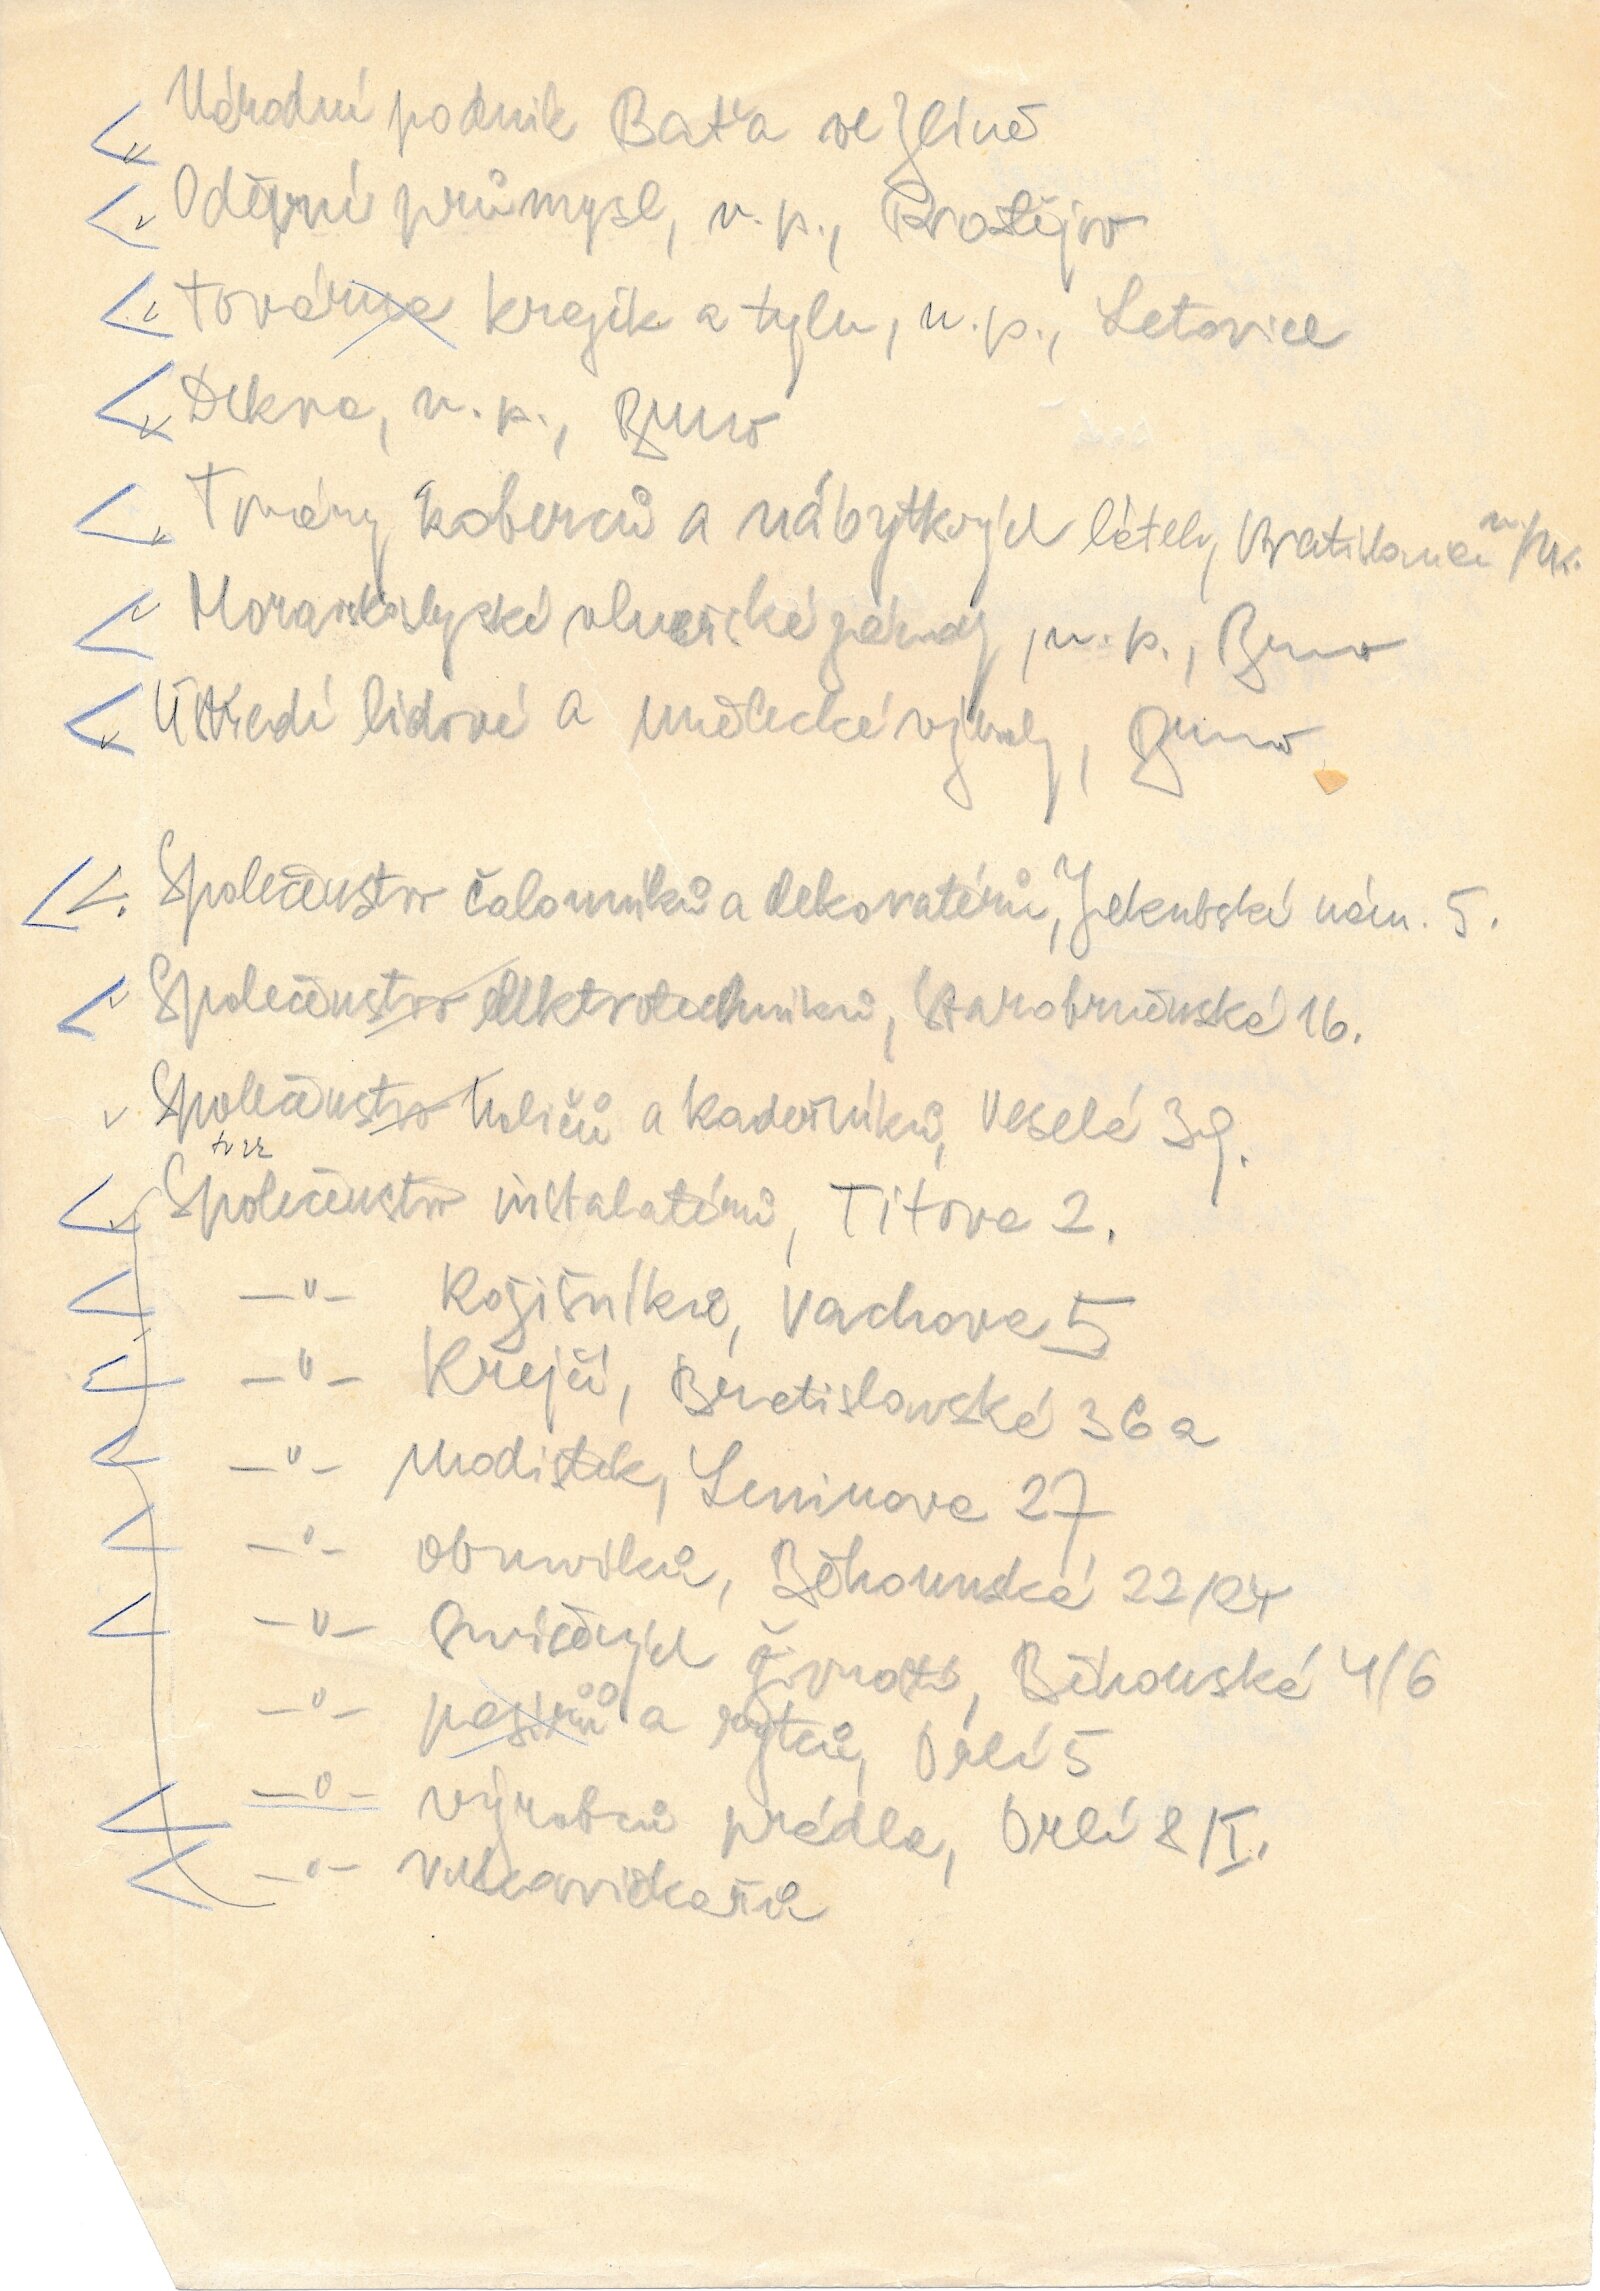 Národní podnik Baťa ve Zlíně
Oděvní průmysl, n. p., Prostějov
továrna krajek a tylu, n. p., Letovice
Dekva, n. p., Brno
Továrny koberců a nábytkových látek, Vratislavice n/N.
Moravskoslezské vlnařské závody, n. p., Brno
Ústředí lidové a umělecké výroby, Brno
Společenstvo čalouníků a dekoratérů, Jakubské nám. 5.
Společenstvo elektrotechniků, Starobrněnská 16.
Společenstvo holičů a kadeřníků, Veselá 39.
Společenstvo instalatérů, Titova 2.
—"— Kožišníků, Vachova 5
—"— Krejčí, Bratislavská 36a
—"— Modistek, Leninova 27
—"— obuvníků, Běhounská 22/24
—"— Svícných živností, Běhounská 4/6
—"— pasířů a rytců, Orlí 5
—"— výrobců prádla, Orlí 8/I.
—"— rukavičkářů